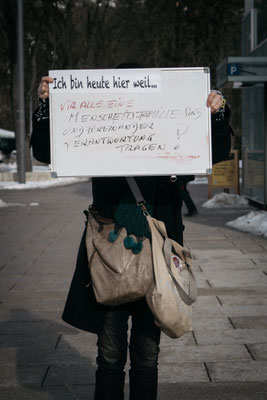 Ich bin heute hier weil...
WIR ALLE EINE
MENSCHHEITSFAMILIE SIND
UND FÜREINANDER
VERANTWORTUNG
TRAGEN!
P